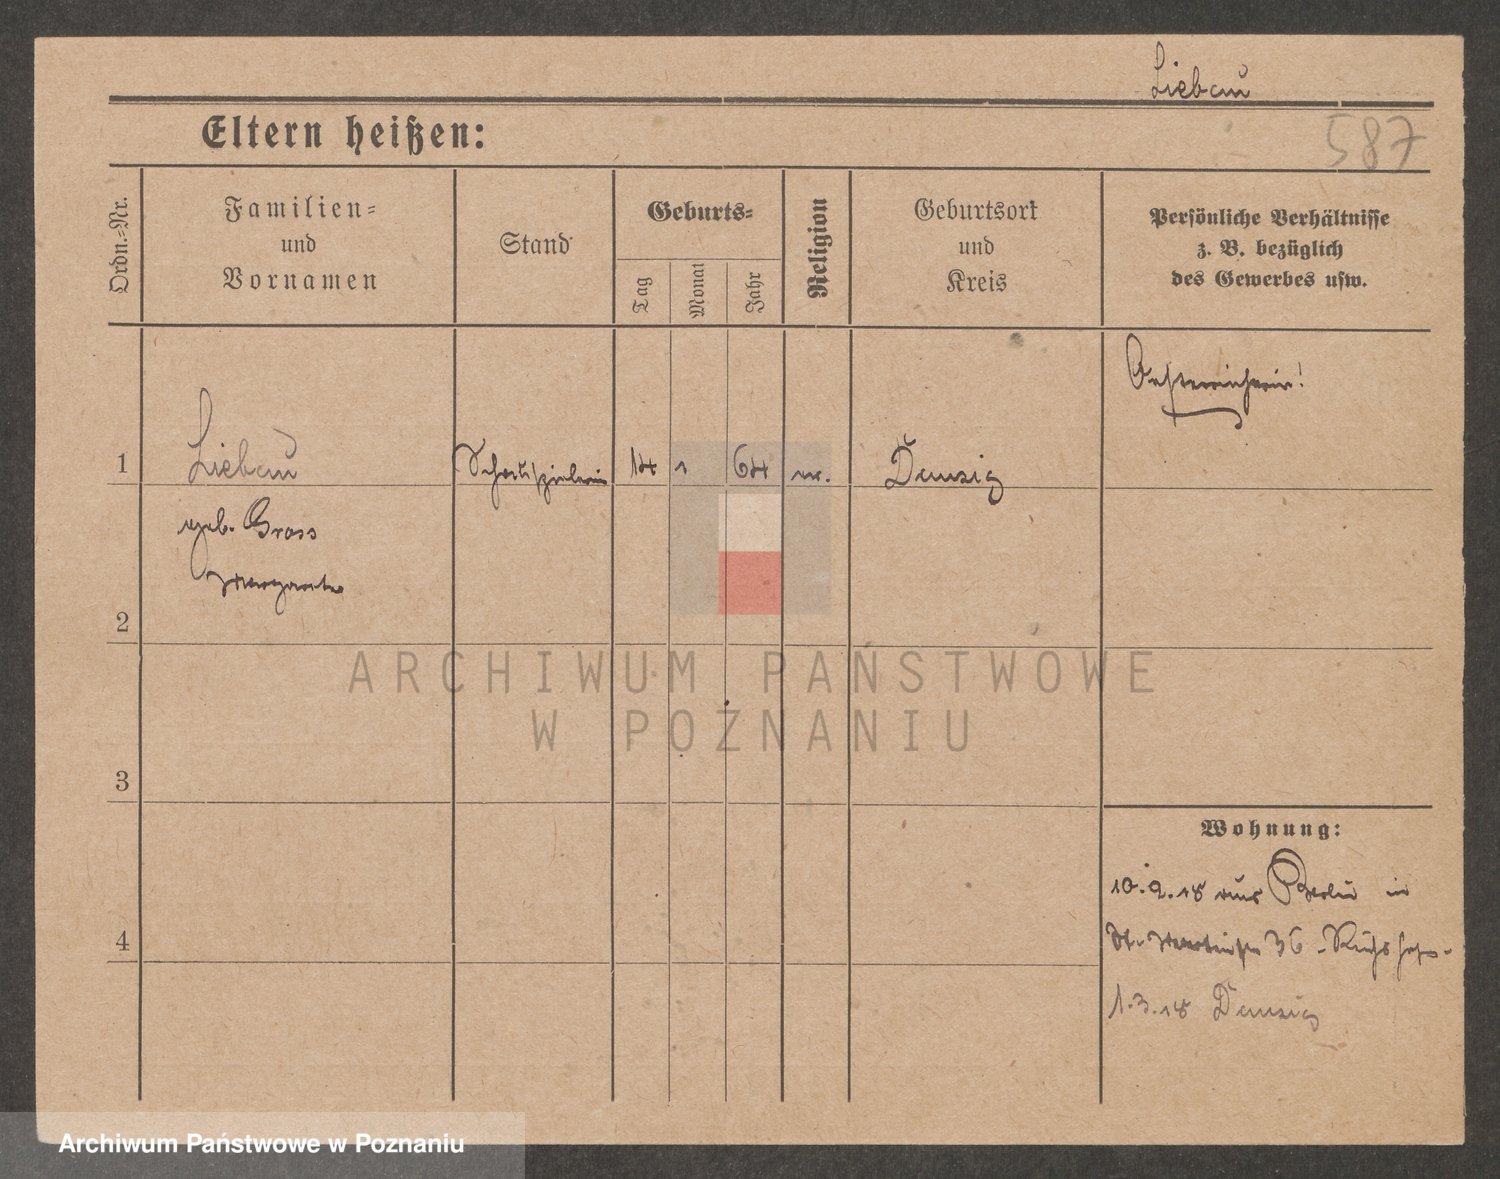 Liebau
587
Eltern heißen:
Ordn.=Nr.
Familien=
und
Vornamen
Stand
Geburts=
Tag
Monat
Jahr
Religion
Geburtsort
und
Kreis
Persönliche Verhältnisse
z. B. bezüglich
des Gewerbes usw.
Oesterreicherin!
1
Liebau
Schauspielerin
14
1
64
Danzig
geb. Gross
Margarete
2
3
4
Wohnung:
10.2.18 aus Berlin in
St. Martinstr 36
1.3.18 Danzig
ARCHIWUM PAŃSTWOWE
W POZNANIU
Archiwum Państwowe w Poznaniu